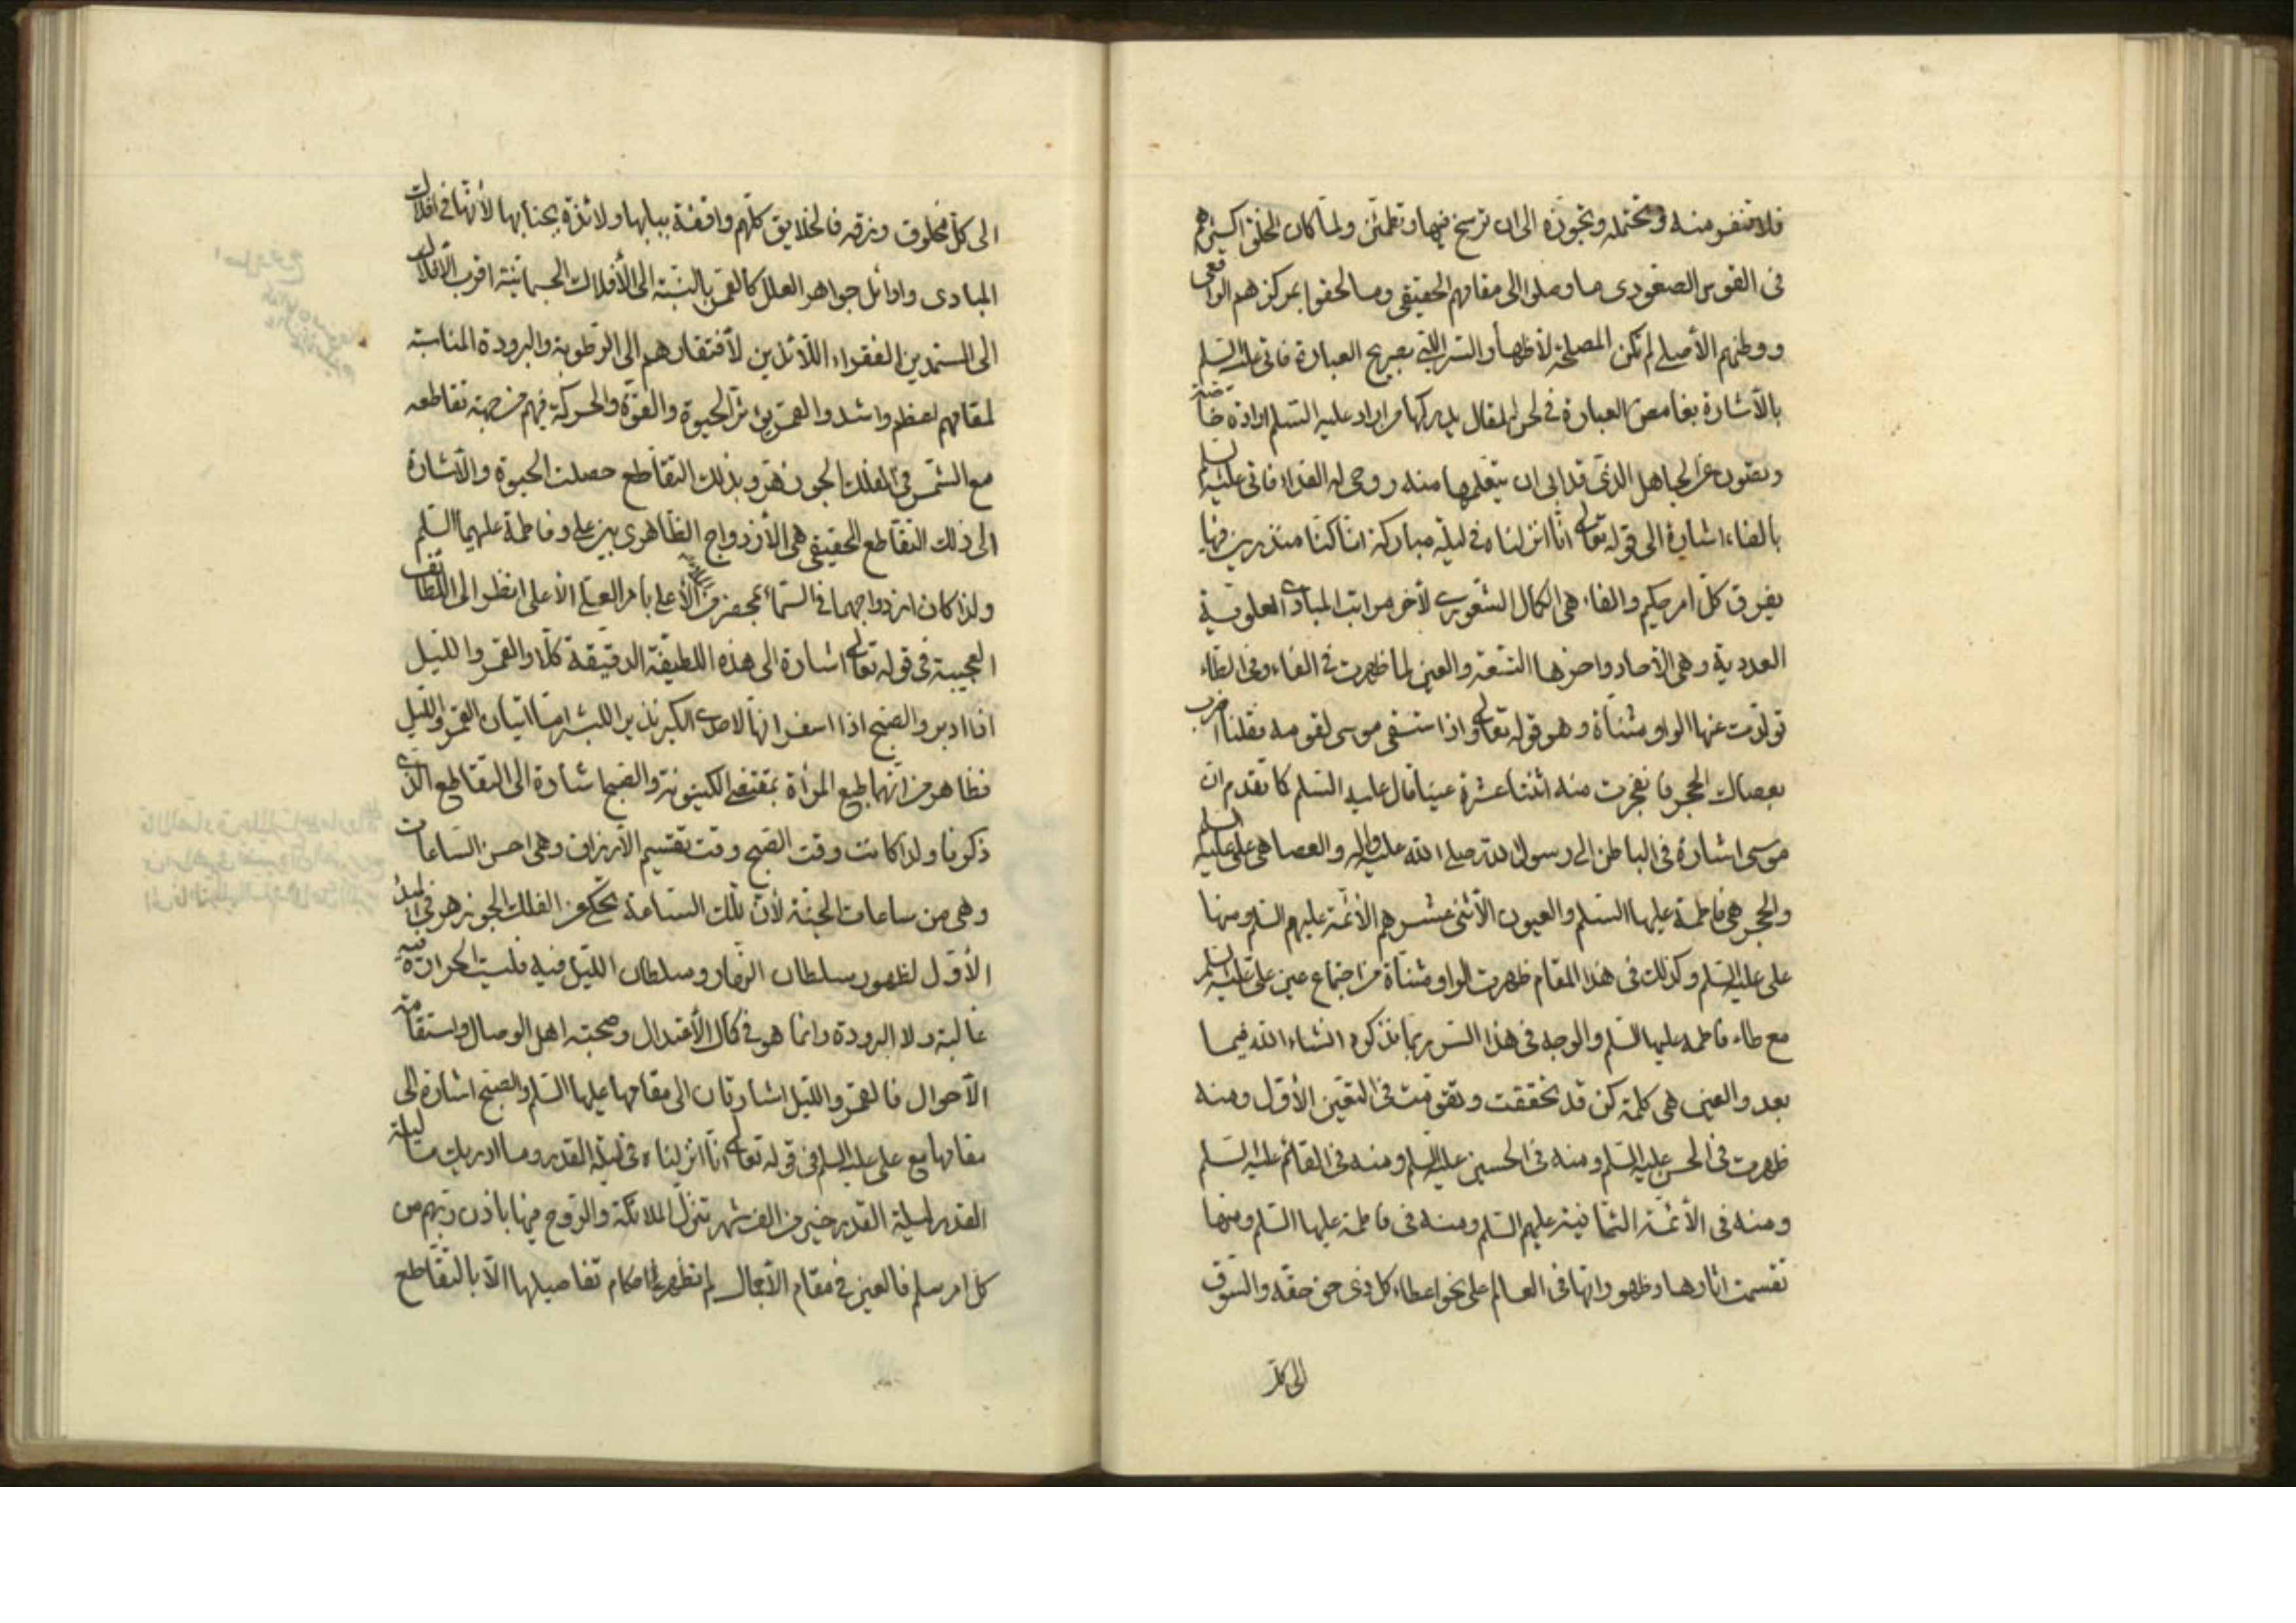 فلا تنفر منه وتحتمله وتجوزه الى ان ترسخ فيها وتطمئن ولما كان الخلق اكثرهم
فى القوس الصعودى ما وصلوا الى مقامهم الحقيقى وما لحقوا بمركزهم الواقعى
ووطنهم الأصلى لم تكن المصلحة لأظهار السر اللبى بصريح العبارة فاتى عليه السلم
بالأشارة بغامض العبارة فى لحن المقال يدركها من اراد عليه السلم ارادة خاصة
ويصون عن الجاهل الذى قد ابى ان يتعلمها منه روحى له الفداء فاتى عليه السلم
بالفاء اشارة الى قوله تعالى انا انزلناه فى ليلة مباركة انا كنا منذرين فيها
يفرق كل امر حكيم والفاء هى الكمال الشعورى لأخر مراتب المبادى العلوية
العددية وهى الآحاد واخرها التسعة والعين لما ظهرت فى الفاء وفى الطاء
تولدت عنها الواو مثناة وهو قوله تعالى واذا استسقى موسى لقومه فقلنا اضرب
بعصاك الحجر فانفجرت منه اثنتا عشرة عينا قال عليه السلم كما تقدم ان
موسى اشارة فى الباطن الى رسول الله صلى الله عليه واله والعصا هى على عليه السلم
والحجر هى فاطمة عليها السلم والعيون الأثنى عشر هم الأئمة عليهم السلم ومنها
على عليه السلم وكذلك فى هذا المقام ظهرت الواو مثناة من اجتماع عين على عليه السلم
مع طاء فاطمه عليها السلم والوجه فى هذا السر ربما نذكره انشاء الله فيما
بعد والعين هى كلمة كن قد تحققت وتقومت فى التعين الأول ومنه
ظهرت فى الحسن عليه السلم ومنه فى الحسين عليه السلم ومنه فى القائم عليه السلم
ومنه فى الأئمة الثمانية عليهم السلم ومنه فى فاطمة عليها السلم ومنها
تقسمت اثارها وظهوراتها فى العالم على نحو اعطاء كل ذى حق حقه والسوق
الى كل
الى كل مخلوق رزقه فالخلايق كلهم واقفة ببابها ولائذة بجنابها لأنها فى افلاك
المبادى واوائل جواهر العلل كالقمر بالنسبة الى الأفلاك الجسمانية اقرب الأفلاك
الى المستمدين الفقراء اللائذين لأفتقارهم الى الرطوبة والبرودة المناسبة
لمقامهم اعظم واشد والقمر يؤثر الحيوة والقوة والحركة فيهم من جهة تقاطعه
مع الشمس فى الفلك الجوزهر وبذلك التقاطع حصلت الحيوة والأشارة
الى ذلك التقاطع الحقيقى هى الأزدواج الظاهرى بين على وفاطمة عليهما السلم
ولذا كان ازدواجهما فى السماء بمحضر من الأعلى بامر العلى الأعلى انظر الى اللطائف
العجيبة فى قوله تعالى اشارة الى هذه اللطيفة الدقيقة كلا والقمر والليل
اذا ادبر والصبح اذا اسفر انها لاحدى الكبر نذيرا للبشر اما اتيان القمر والليل
فظاهر من انهما طبع المرأة بمقتضى الكينونة والصبح اشارة الى التقاطع الذى
ذكرنا ولذا كانت وقت الصبح وقت تقسيم الأرزاق وهى احسن الساعات
وهى من ساعات الجنة لأن تلك الساعة تحكى عن الفلك الجوزهر فى
الأول لظهور سلطان النهار وسلطان الليل فيه فليست الحرارة فيه
غالبة ولا البرودة وانما هو فى كمال الأعتدال وصحبة اهل الوصال واستقامة
الأحوال فالقمر والليل اشارتان الى مقامها عليها السلم والصبح اشارة الى
مقامها مع على عليه السلم فى قوله تعالى انا انزلناه فى ليلة القدر وما ادريك ما ليلة
القدر ليلة القدر خير من الف شهر تنزل الملائكة والروح فيها باذن ربهم من
كل امر سلم فالعين فى مقام الأجمال لم تظهر احكام تفاصيلها الا بالتقاطع